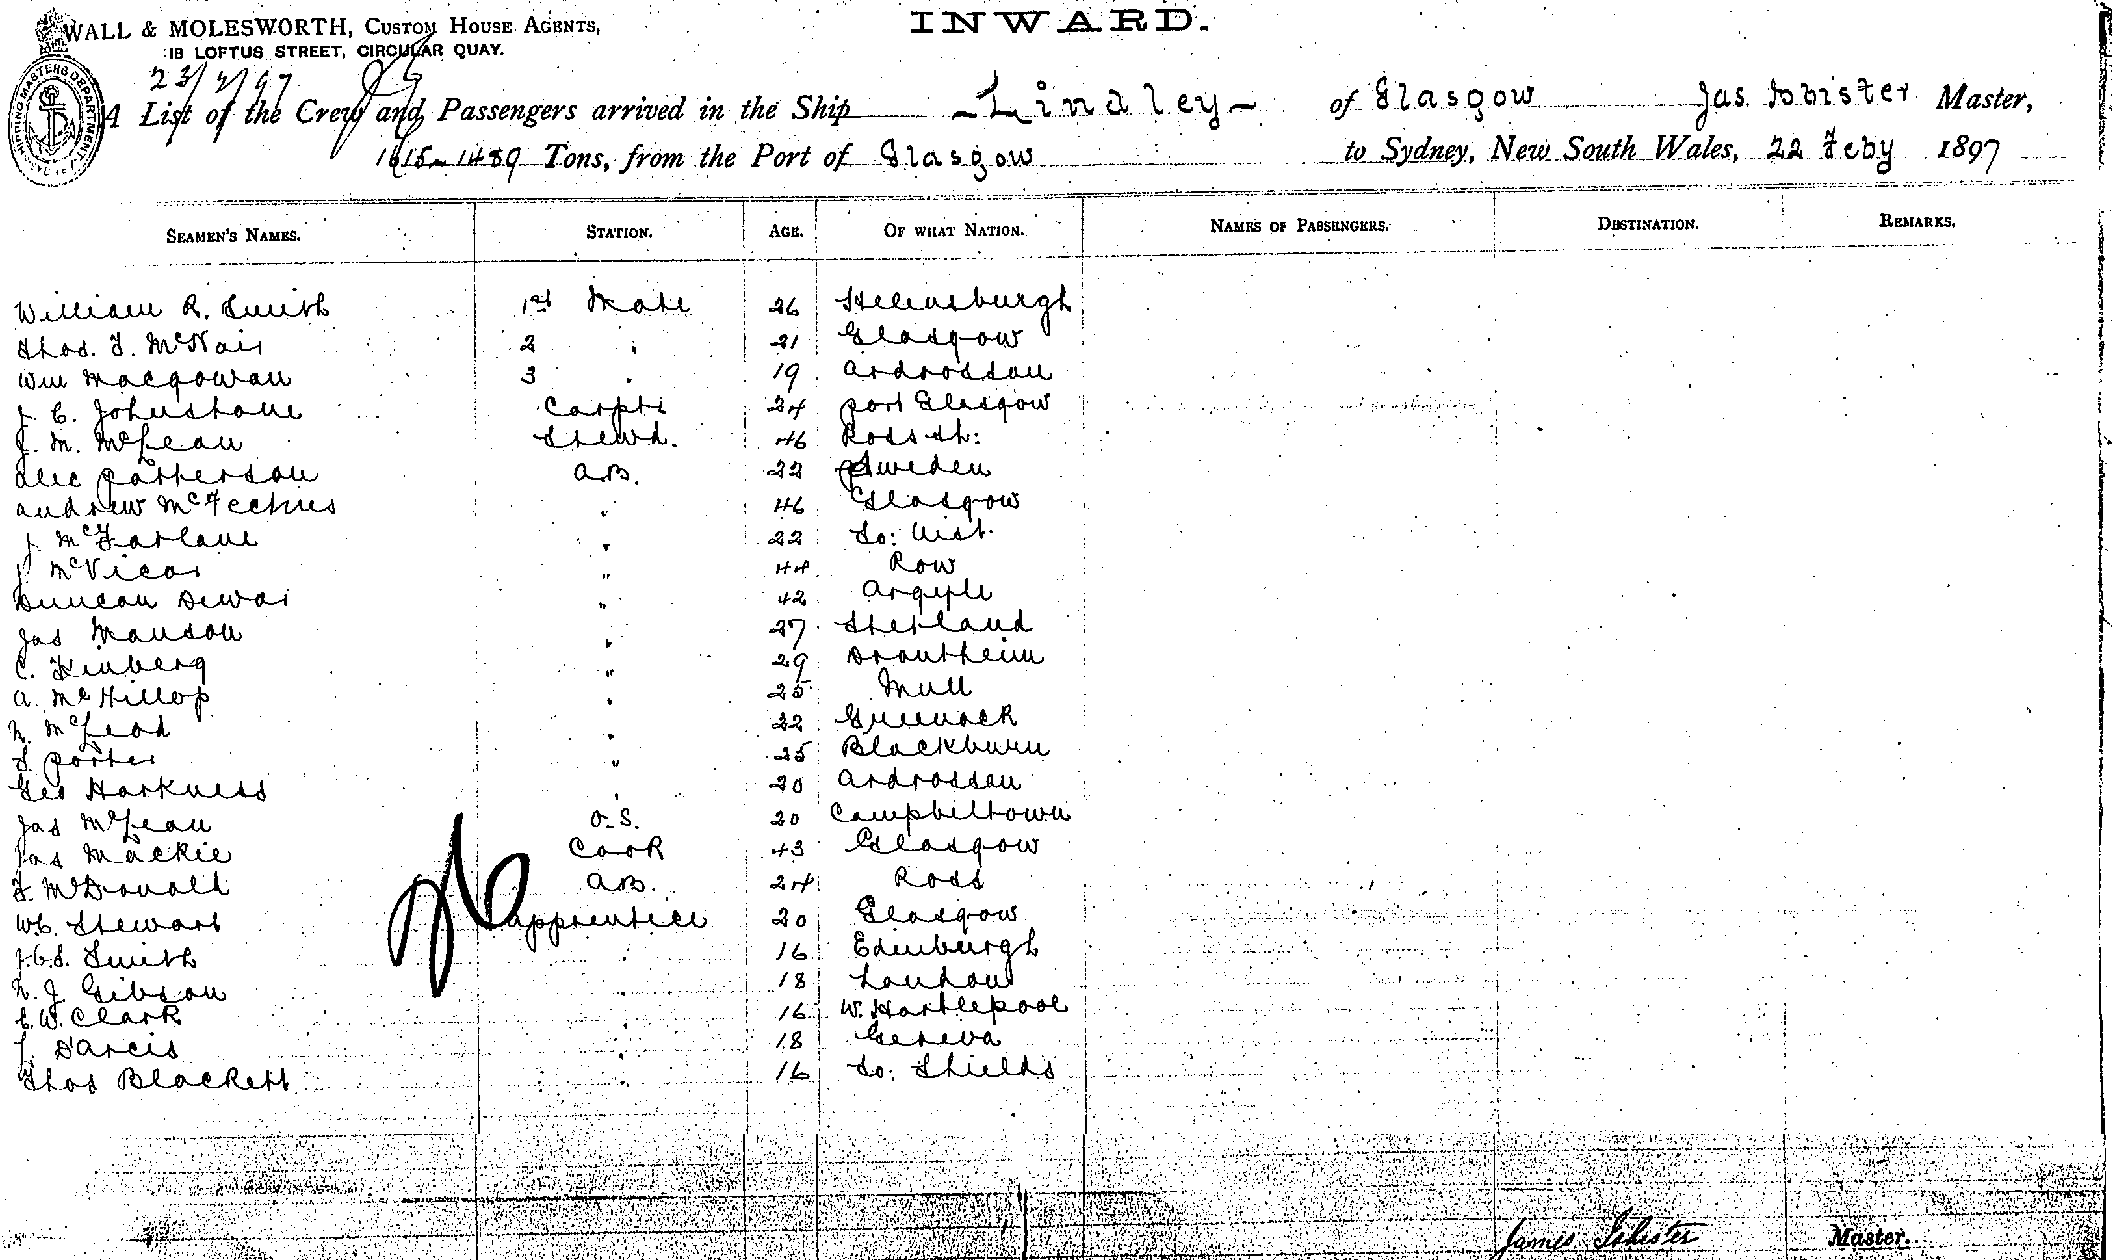 WALL & MOLESWORTH, CUSTOM HOUSE AGENTS,
INWARD.
18 LOFTUS STREET, CIRCULAR QUAY.
23/2/97
A List of the Crew and Passengers arrived in the Ship Lindley of Glasgow Jas Isbister Master,
1615 - 1489 Tons, from the Port of Glasgow to Sydney, New South Wales, 22 Feby 1897
SEAMEN'S NAMES. STATION. AGE. OF WHAT NATION. NAMES OF PASSENGERS. DESTINATION. REMARKS.
William R. Smith 1st Mate 26 Helensburgh
Thos. F. McNair 2 " 21 Glasgow
Wm Macgowan 3 " 19 Ardrossan
J. C. Johnstone Carptr 24 Port Glasgow
J. M. McLean Stewd. 46 Ross sh:
Alec Patterson A.B. 22 Sweden
Andrew McFechnes " 46 Glasgow
J. McFarlane " 22 So: Uist.
J McVicar " 44 Row
Duncan Dewar " 42 Argyle
Jas Manson " 27 Shetland
C. Finberg " 29 Drontheim
A. McKillop " 25 Mull
N. McLeod " 22 Greenock
S. Porter " 25 Blackburn
Geo Harkness " 20 Ardrossan
Jas McLean O.S. 20 Campbeltown
Jas Mackie Cook 43 Glasgow
F. McDonald A.B. 24 Ross
W.C. Stewart Apprentice 20 Glasgow
J.C.S. Smith " 16 Edinburgh
N. J. Gibson " 18 London
C.W. Clark " 16 W. Hartlepool
J. Darcis " 18 Geneva
Thos Blackett " 16 So: Shields
James Isbister Master.